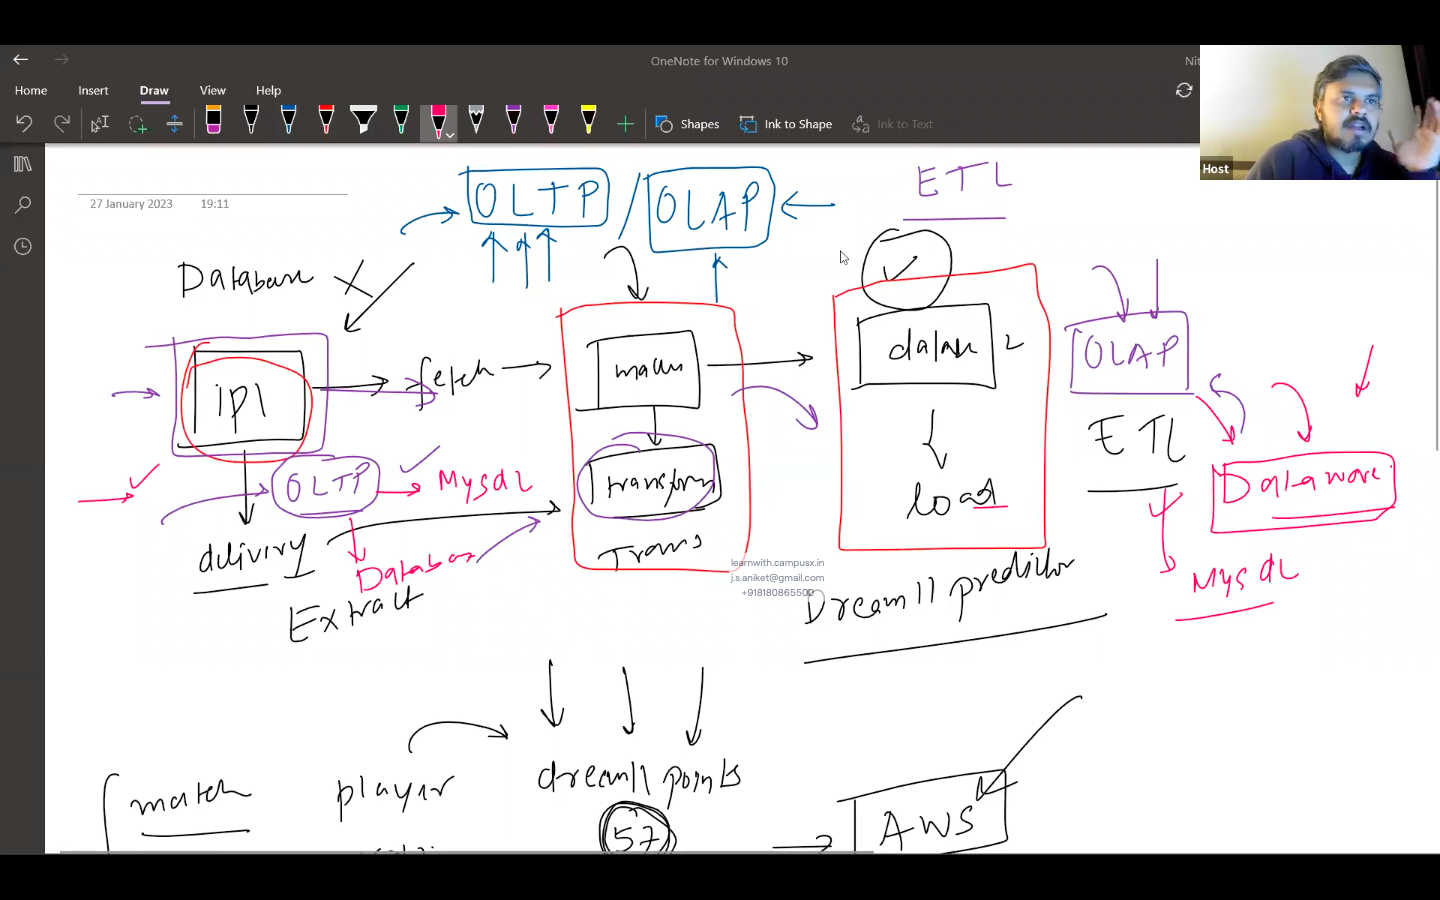 OneNote for Windows 10
Nit
Home Insert Draw View Help
Shapes Ink to Shape Ink to Text
Host
27 January 2023 19:11
OLTP / OLAP
ETL
Database
ipl
fetch
transform
Trans
load
OLAP
ETL
Dataware
Mysql
OLTP
Mysql
delivery
Database
Extract
learnwith.campusx.in
j.s.aniket@gmail.com
+918180865500
Dream11 predictor
match player dream11 points
57
AWS